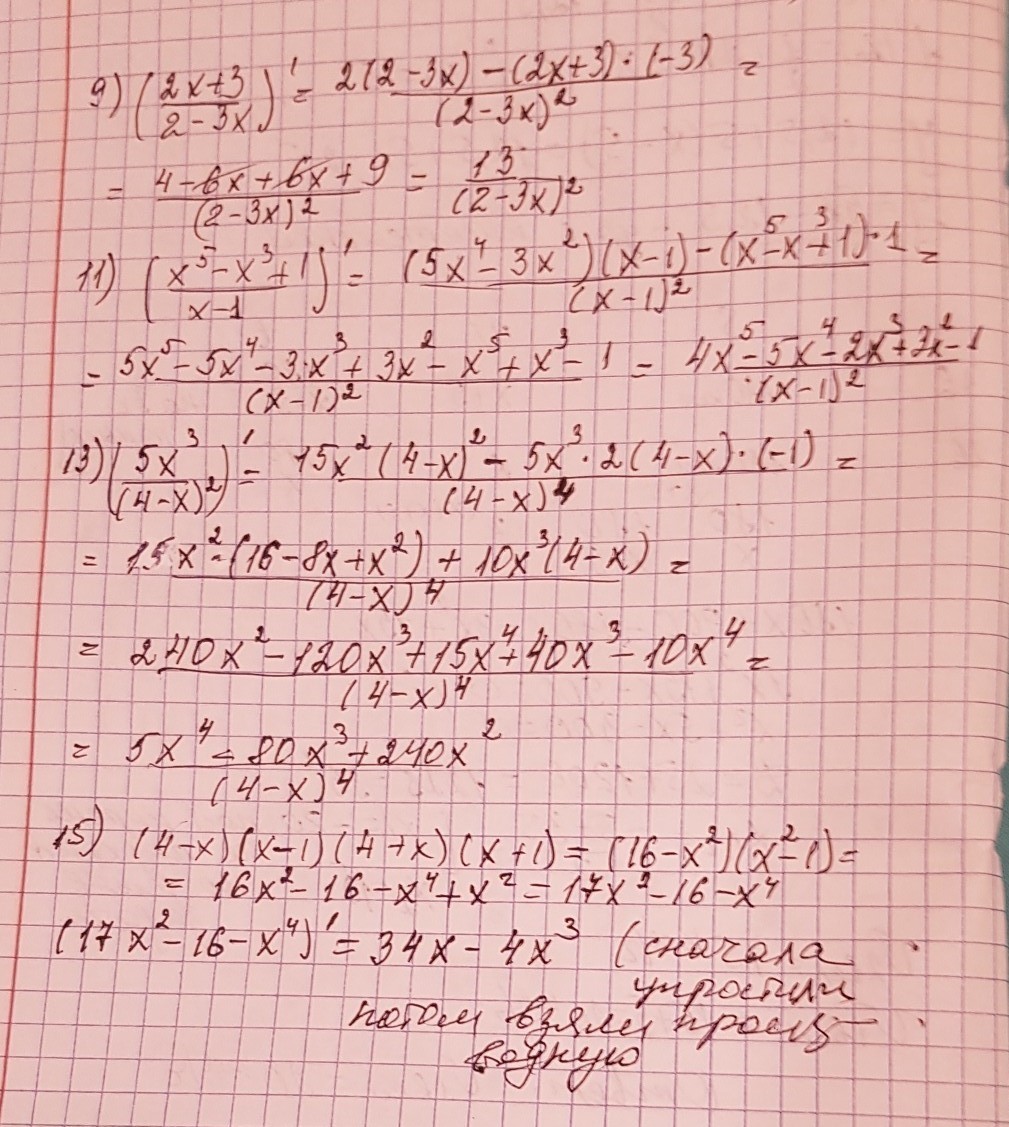 9) ((2x+3)/(2-3x))' = (2(2-3x)-(2x+3)·(-3))/(2-3x)² =
= (4-6x+6x+9)/(2-3x)² = 13/(2-3x)²
11) ((x⁵-x³+1)/(x-1))' = ((5x⁴-3x²)(x-1)-(x⁵-x³+1)·1)/(x-1)² =
= (5x⁵-5x⁴-3x³+3x²-x⁵+x³-1)/(x-1)² = (4x⁵-5x⁴-2x³+3x²-1)/(x-1)²
13) (5x³/(4-x)²)' = (15x²(4-x)²-5x³·2(4-x)·(-1))/(4-x)⁴ =
= (15x²·(16-8x+x²)+10x³(4-x))/(4-x)⁴ =
= (240x²-120x³+15x⁴+40x³-10x⁴)/(4-x)⁴ =
= (5x⁴-80x³+240x²)/(4-x)⁴
15) (4-x)(x-1)(4+x)(x+1) = (16-x²)(x²-1) =
= 16x²-16-x⁴+x² = 17x²-16-x⁴
(17x²-16-x⁴)' = 34x-4x³ (сначала
упростили
потом взяли произ-
водную